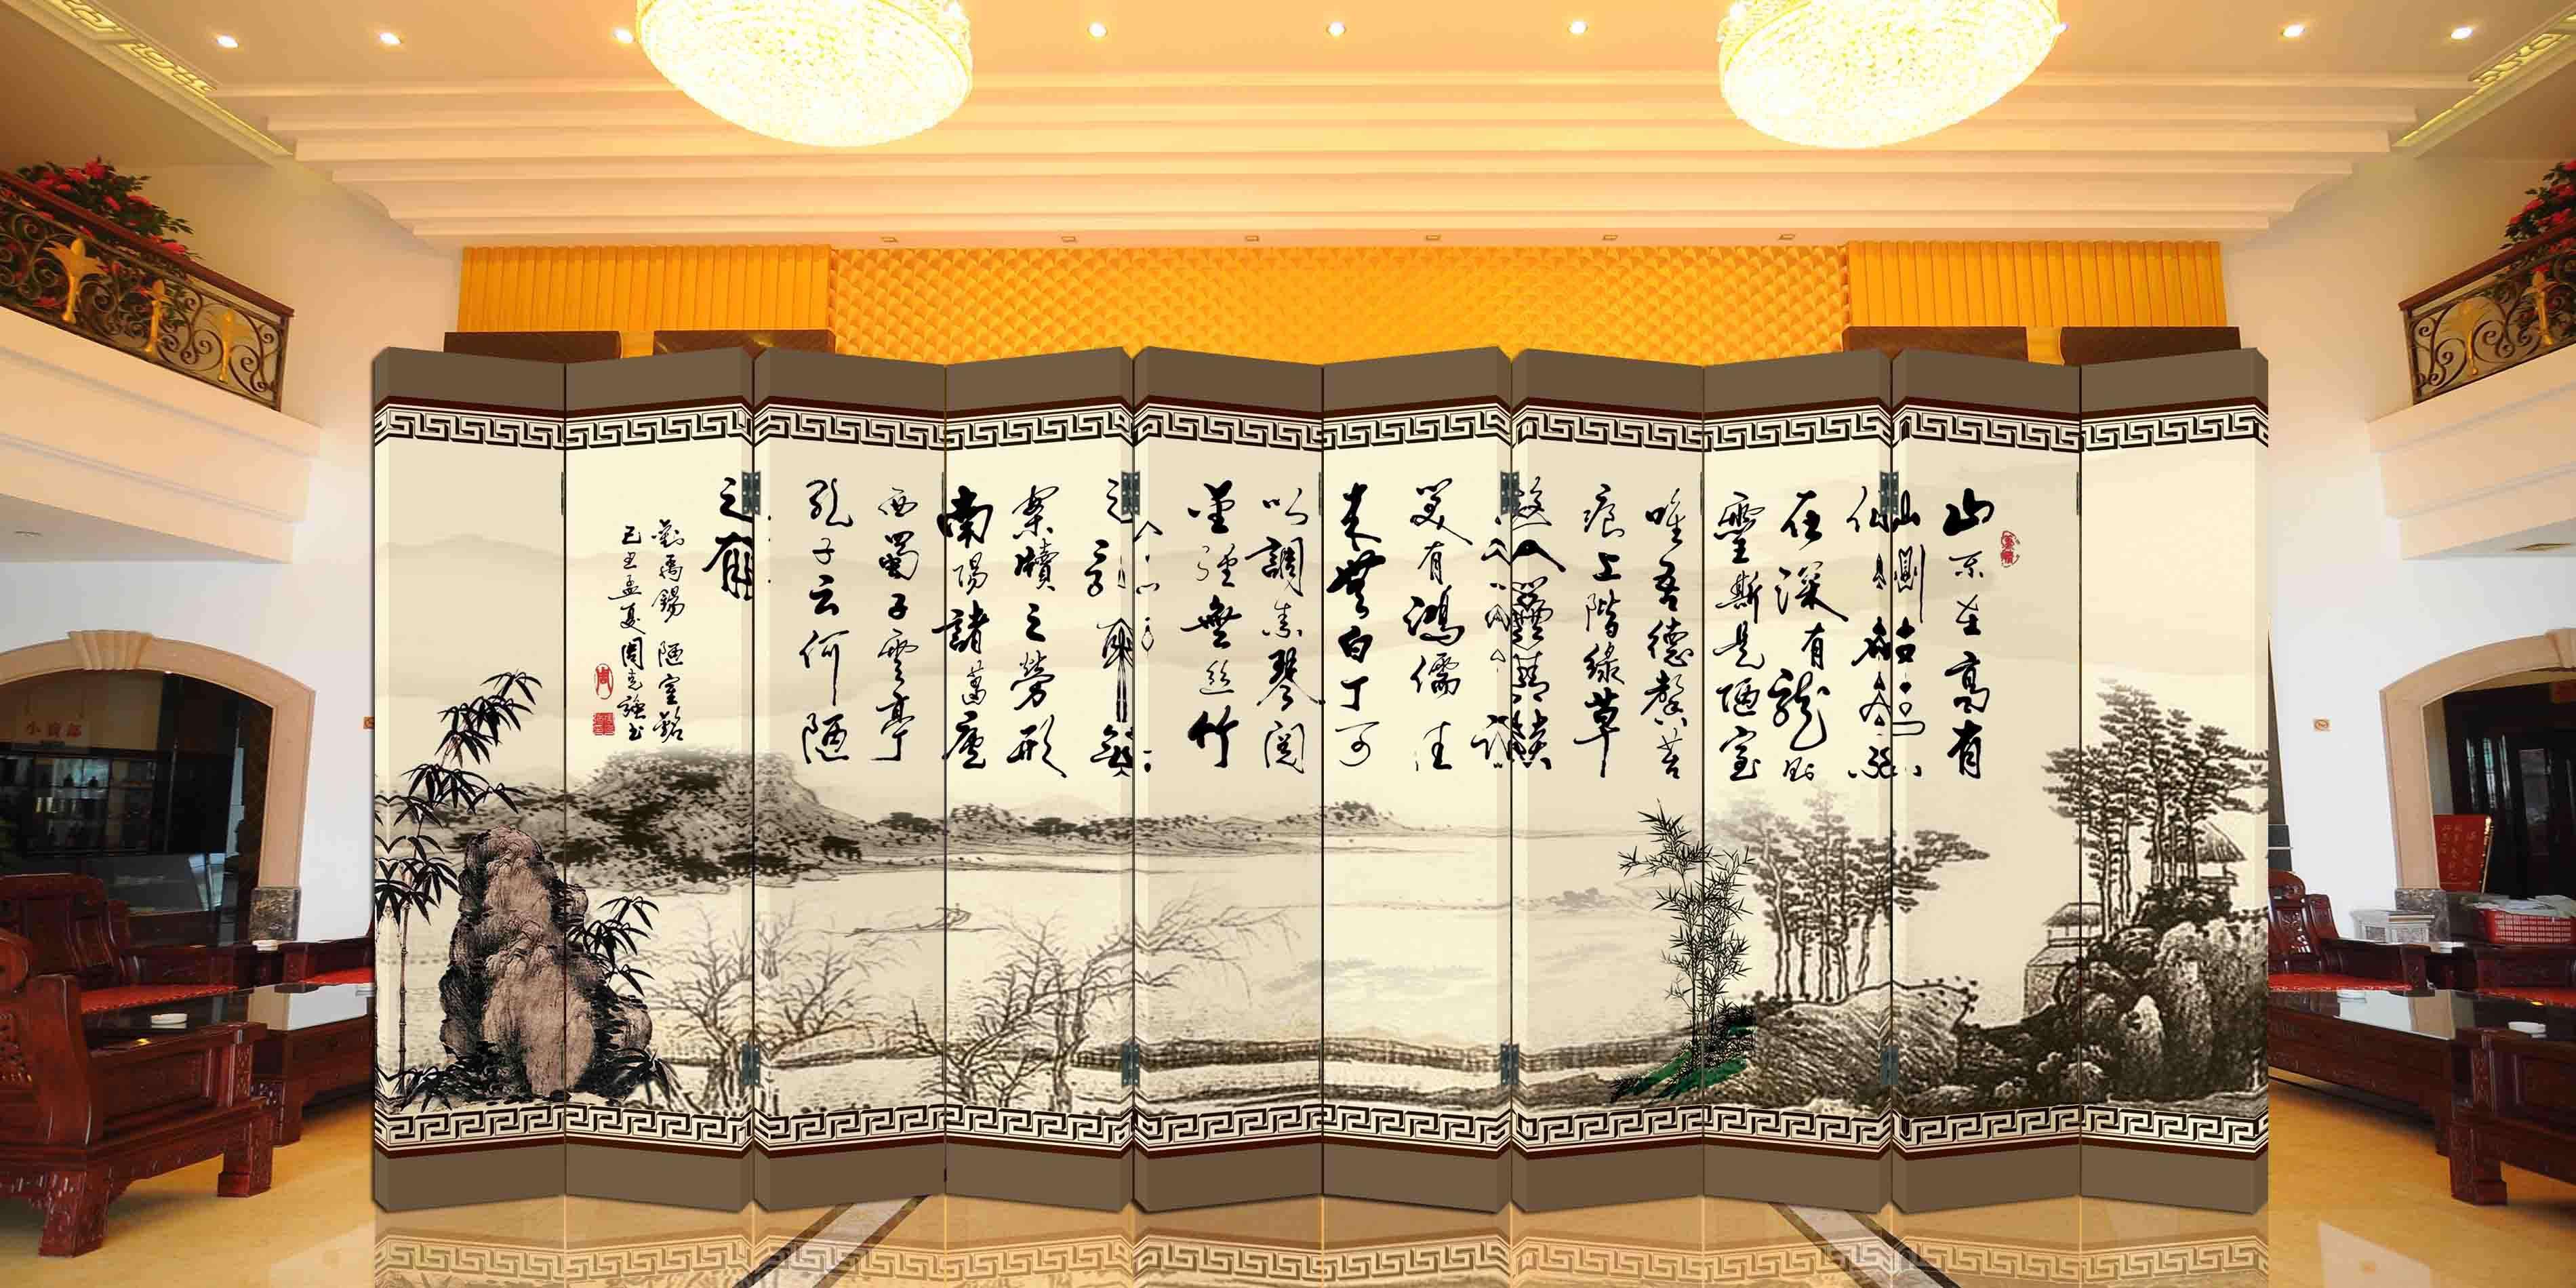 山不在高有
仙
在深有龍則
靈斯是陋室
唯吾德馨苔
痕上階綠草
入簾
笑有鴻儒往
來無白丁可
以調素琴閱
金經無絲竹
之亂耳無
案牘之勞形
南陽諸葛廬
西蜀子雲亭
孔子云何陋
之有
劉禹錫 陋室銘
己丑孟夏周克強書
周
小賣部